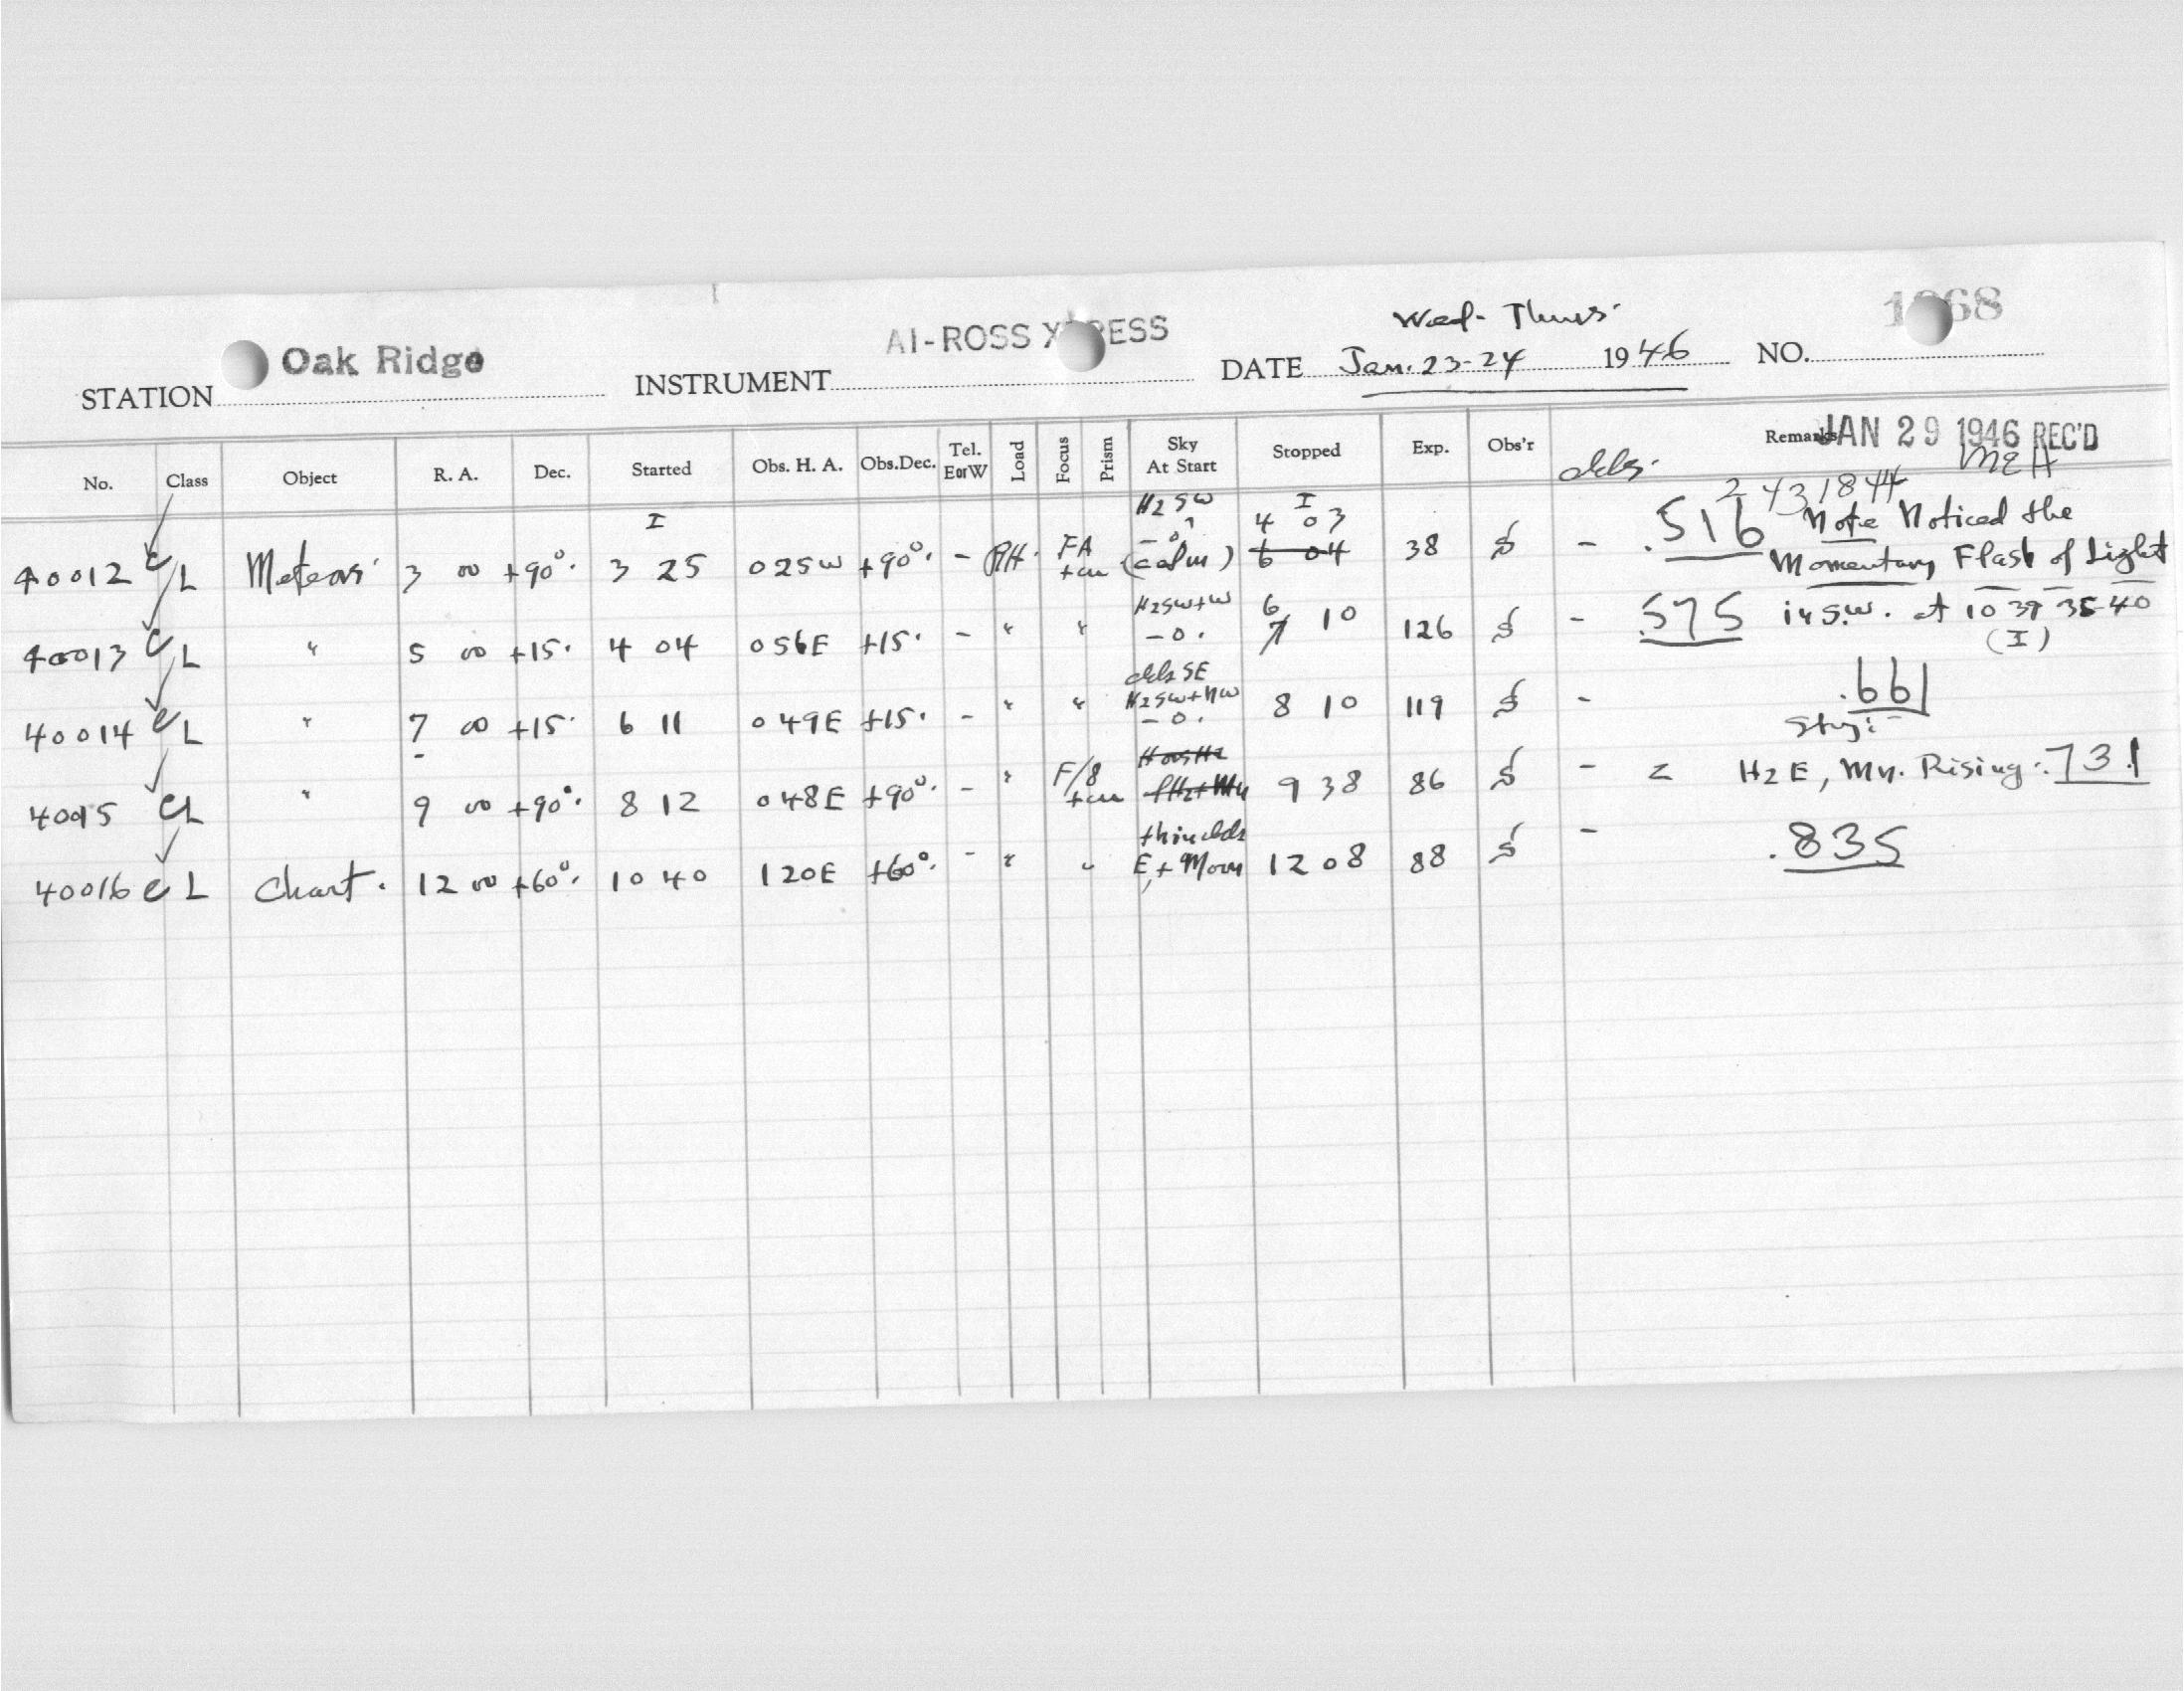 Wed - Thurs.
STATION Oak Ridge INSTRUMENT AI-ROSS X PRESS DATE Jan. 23-24 1946 NO. 1 68
No. Class Object R. A. Dec. Started Obs. H. A. Obs.Dec. Tel. E or W Load Focus Prism Sky At Start Stopped Exp. Obs'r Remarks JAN 29 1946 REC'D
clds. 2431844 MEH
40012 C/L Meteors 3 00 +90°. I 3 25 0 25W +90°. - RH. FA +cu Hz SW -0. (calm) I 4 03 6 04 38 - .516 Note Noticed the
Momentary Flash of Light
40013 C/L " 5 00 +15. 4 04 0 56E +15. - " " Hz SW+W -0. 6 7 10 126 - .575 in S.W. at 10 39 35-40
(I)
40014 C/L " 7 00 +15. 6 11 0 49E +15. - " " clds SE Hz SW+NW -0. 8 10 119 - .661
40015 CL " 9 00 +90°. 8 12 0 48E +90°. - " F/8 +cu 9 38 86 - Hz E, Mn. Rising. .731
40016 C L Chart. 12 00 +60°. 10 40 1 20E +60°. - " " thin clds E, + Moon 12 08 88 - .835